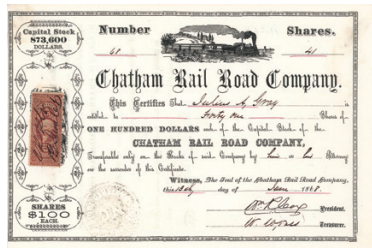 Capital Stock
$73,600
DOLLARS.
Number
Shares.
41
Chatham Rail Road Company.
This Certifies That Julius A. Gray is
entitled to Forty one Shares of
ONE HUNDRED DOLLARS each of the Capital Stock of the
CHATHAM RAIL ROAD COMPANY,
Transferable only on the Books of said Company by him or his Attorney
on the surrender of this Certificate.
Witness, The Seal of the Chatham Rail Road Company,
this day of 1868
President.
Treasurer.
SHARES
$100
EACH.